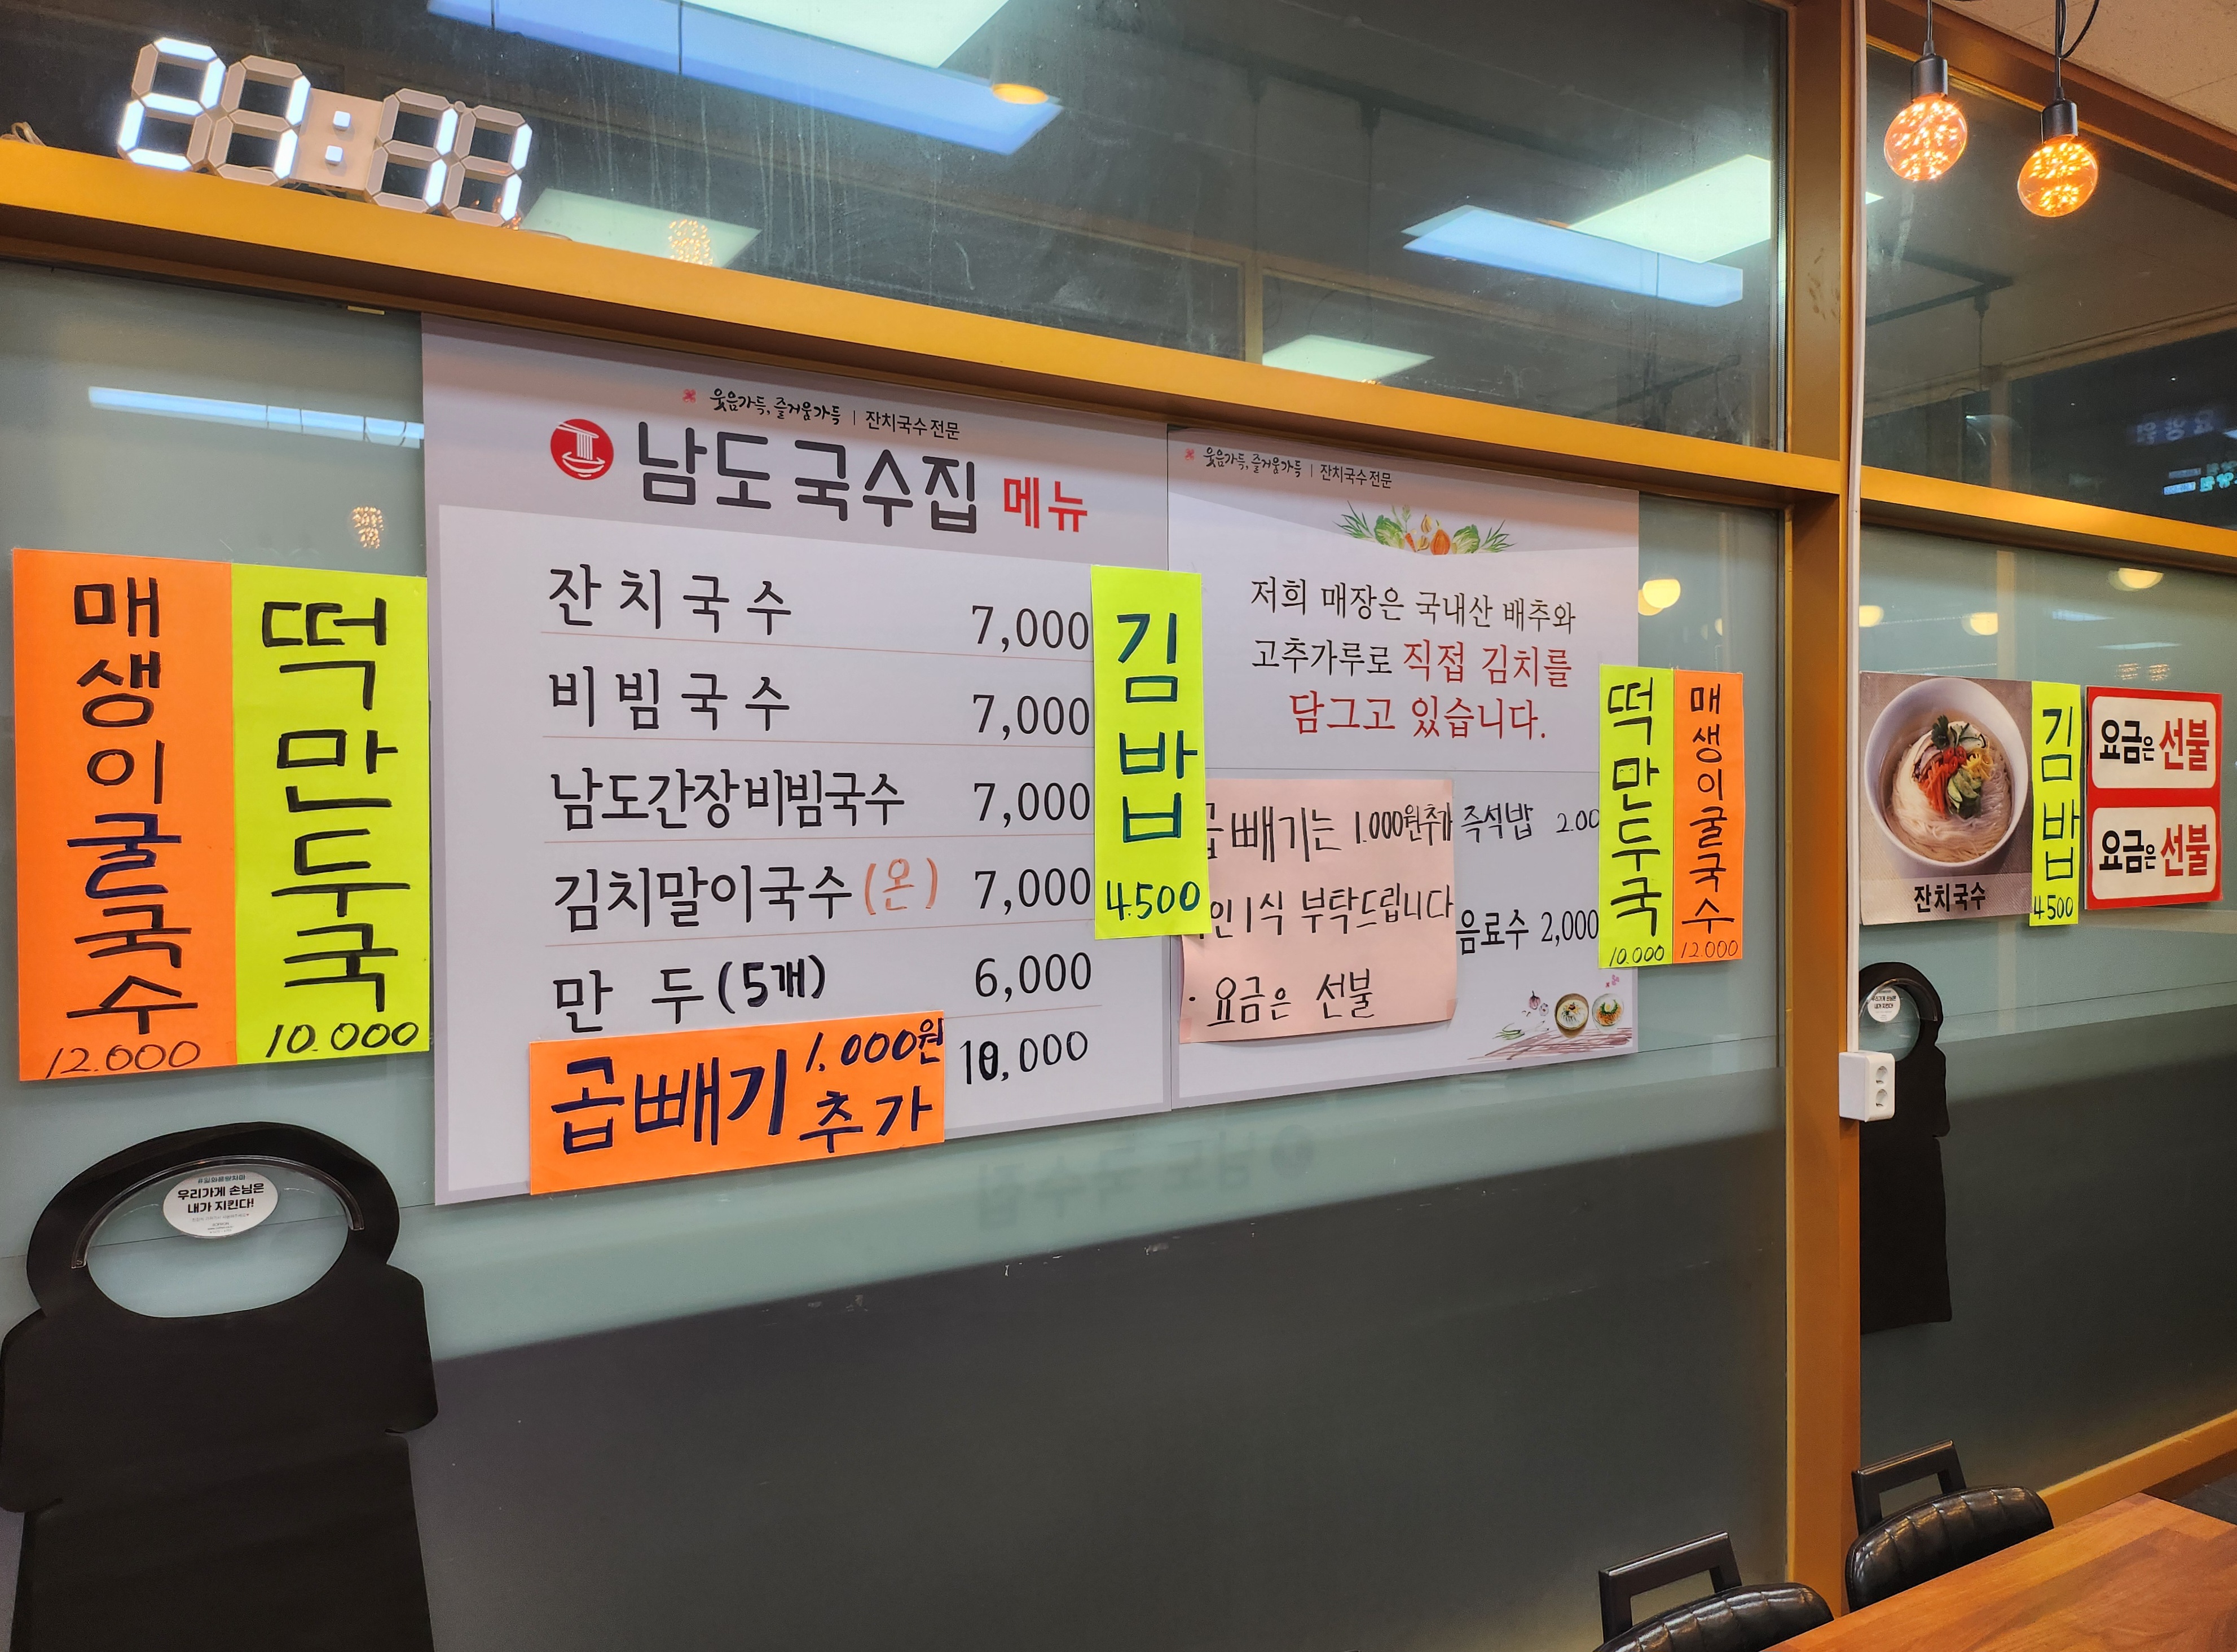 매생이굴국수
12.000
떡만두국
10.000
웃음가득, 즐거움가득 | 잔치국수 전문
남도국수집 메뉴
잔치국수 7,000
비빔국수 7,000
남도간장비빔국수 7,000
김치말이국수(온) 7,000
만 두(5개) 6,000
10,000
곱빼기 1.000원
추가
김밥
4.500
웃음가득, 즐거움가득 | 잔치국수 전문
저희 매장은 국내산 배추와
고추가루로 직접 김치를
담그고 있습니다.
빼기는 1.000원추가
인1식 부탁드립니다
· 요금은 선불
즉석밥 2.00
음료수 2,000
떡만두국
10.000
매생이굴국수
12.000
잔치국수
김밥
4500
요금은 선불
요금은 선불
우리가게 손님은
내가 지킨다!
우리가게 손님은
내가 지킨다!